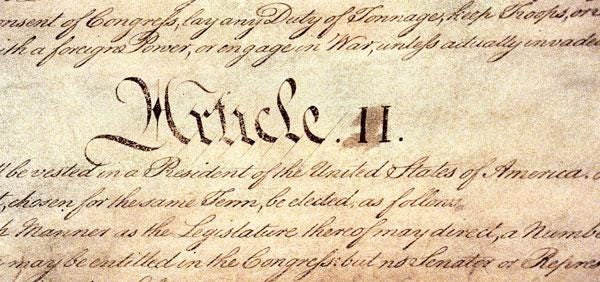 onsent of Congress, lay any Duty of Tonnage, keep Troops, or
ith a foreign Power, or engage in War, unless actually invade
Article. II.
ll be vested in a President of the United States of America.
t, chosen for the same Term, be elected, as follow
Manner as the Legislature thereof may direct, a Numbe
may be entitled in the Congress: but no Senator or Repres